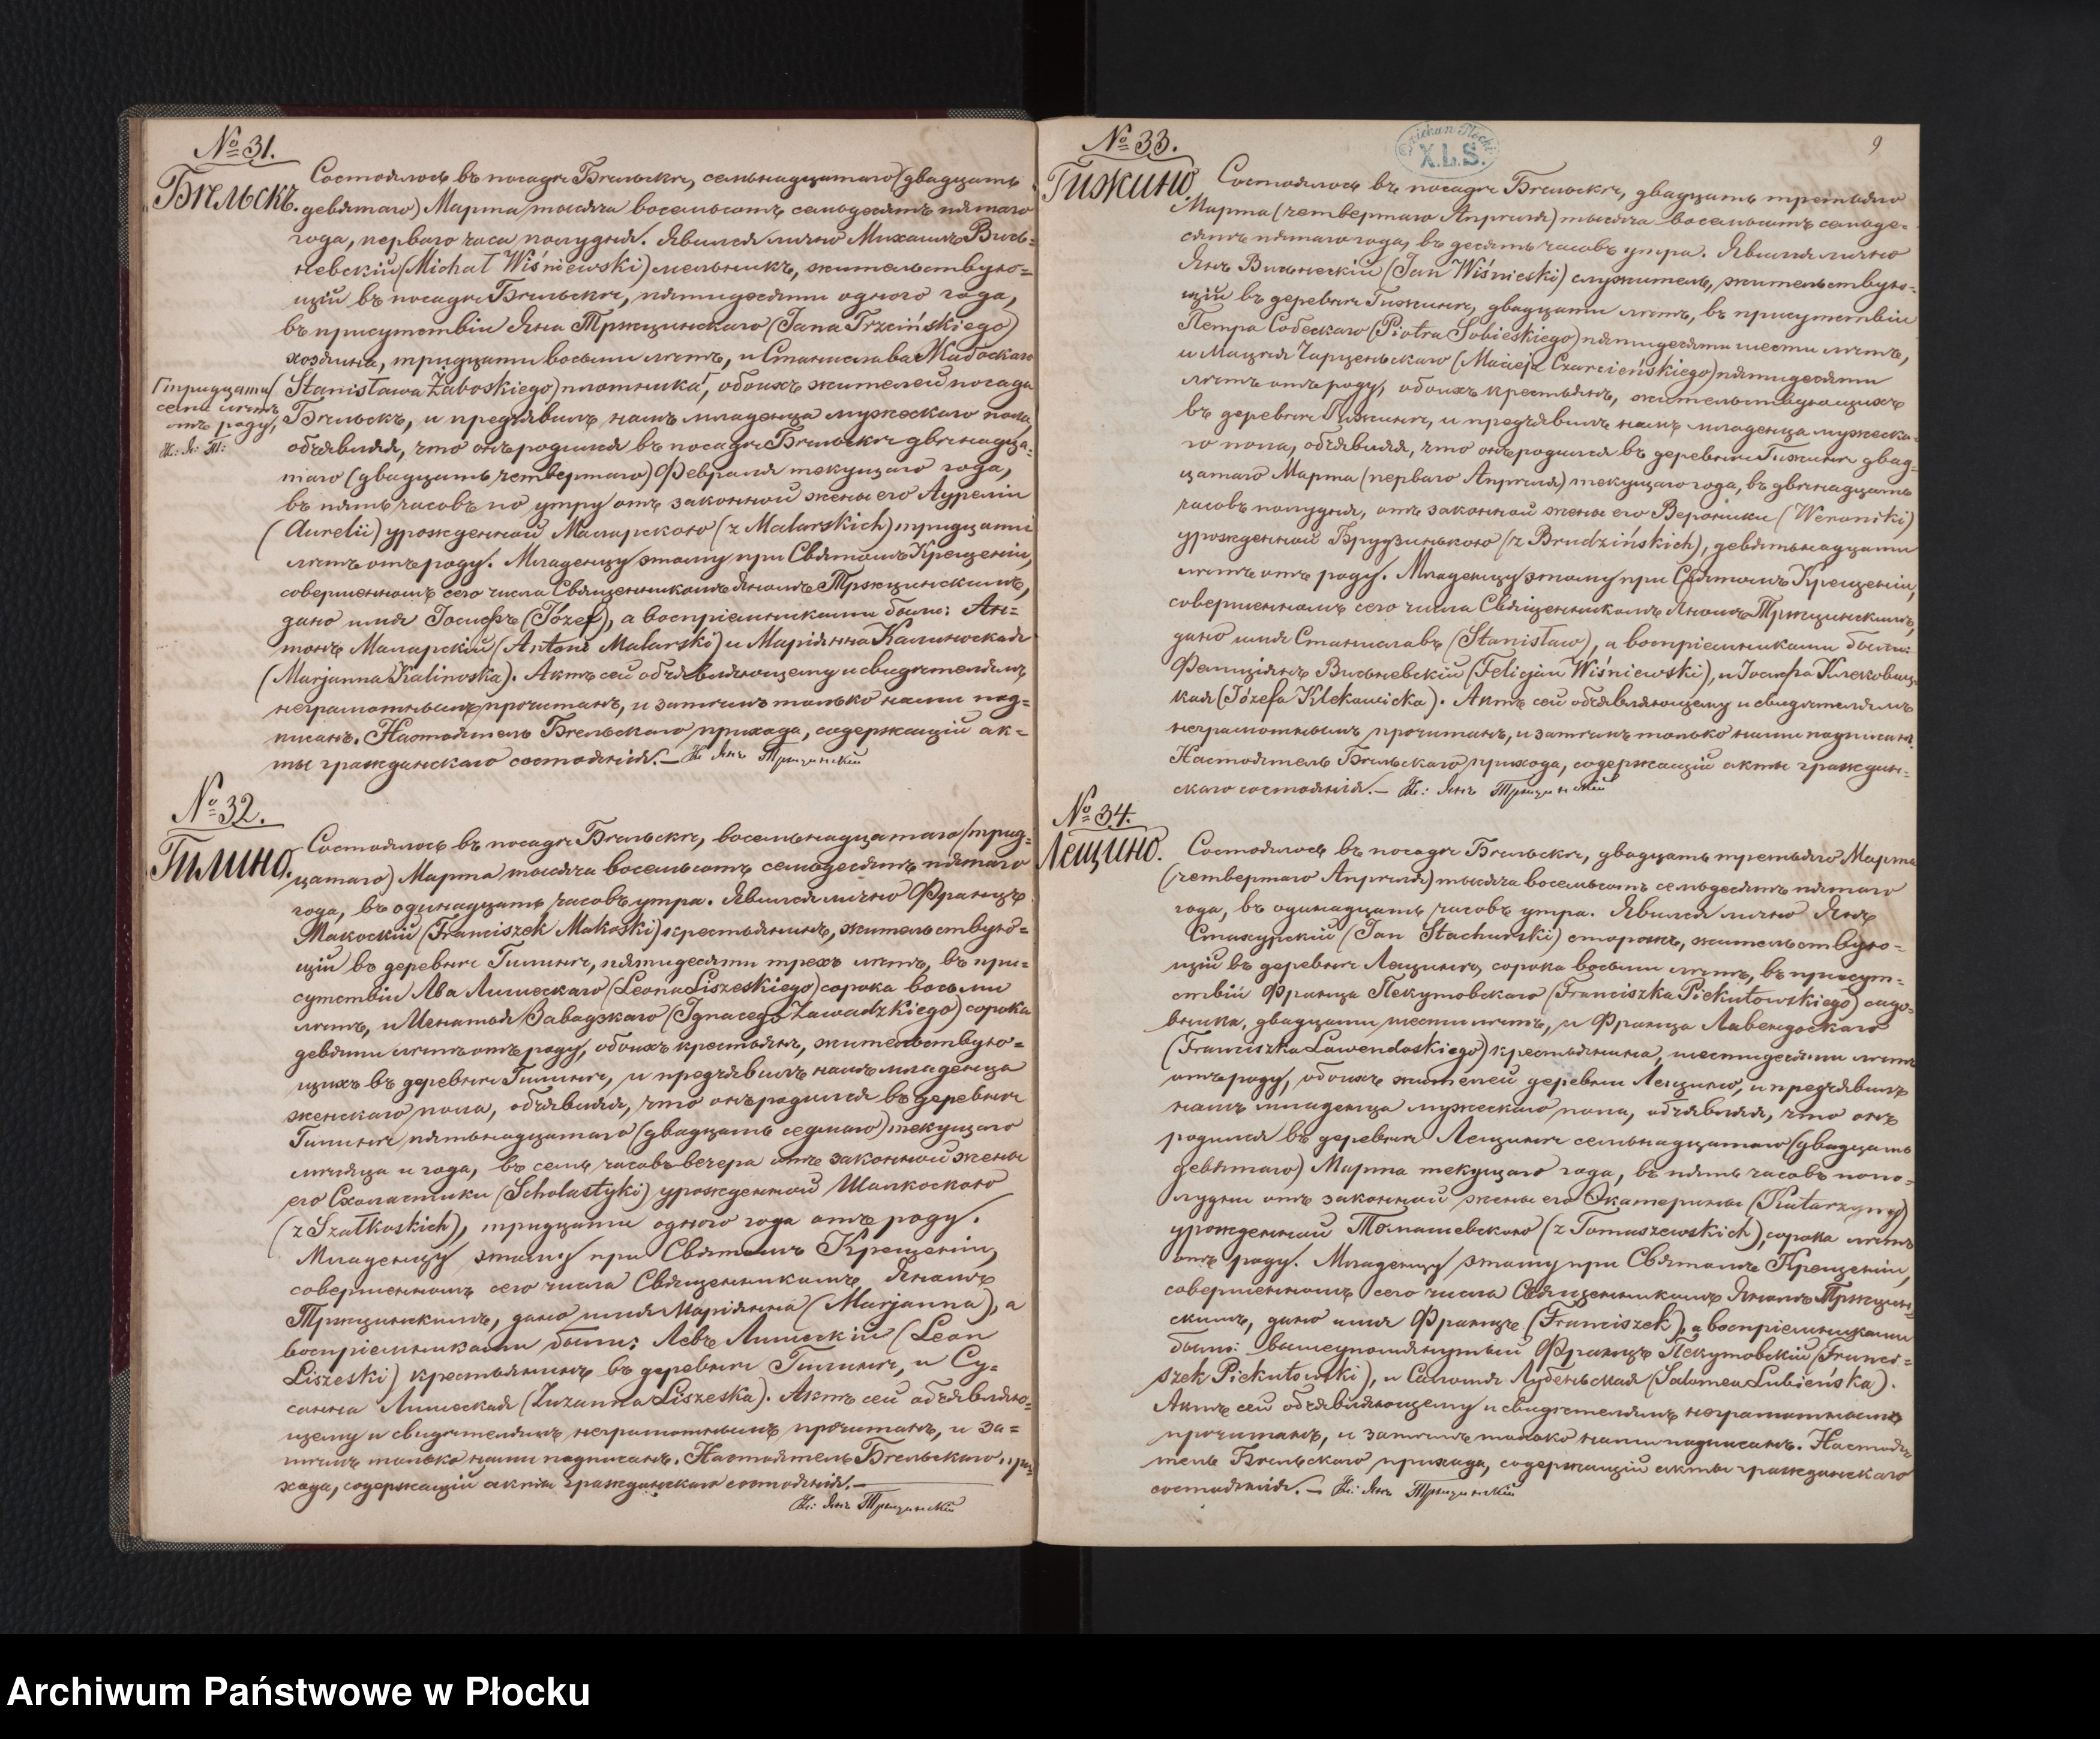 № 31.
Бѣльскъ.
Состоялось въ посадѣ Бѣльскѣ, семьнадцатаго (двадцать
девятаго) Марта тысяча восемьсотъ семьдесятъ пятаго
года, перваго часа полудня. Явился лично Михаилъ Висьневскій
невскій (Michał Wiśniewski) мельникъ, жительствую=
щій въ посадѣ Бѣльскѣ, пятидесяти одного года,
въ присутствіи Яна Тржцинскаго (Jana Trzcińskiego)
хозяина, тридцати восьми лѣтъ, и Станислава Жабоскаго
(Stanisława Żaboskiego) плотника, обоихъ жителей посада
тридцати
семи лѣтъ
отъ роду,
К: Я: Т:
Бѣльскъ, и предъявилъ намъ младенца мужескаго пола,
объявляя, что онъ родился въ посадѣ Бѣльскѣ двѣнадца=
таго (двадцать четвертаго) Февраля текущаго года,
въ пять часовъ по утру отъ законной жены его Ауреліи
(Aurelii) урожденной Маларскою (z Malarskich) тридцати
лѣтъ отъ роду. Младенцу этому при Святомъ Крещеніи,
совершенномъ сего числа Священникомъ Яномъ Тржцинскимъ,
дано имя Іосифъ (Józef), а воспріемниками были: Ан=
тонъ Маларскій (Antoni Malarski) и Маріянна Калиноская
(Marjanna Kalinoska). Актъ сей объявляющему и свидѣтелямъ
неграмотнымъ прочитанъ, и затѣмъ только нами под=
писанъ. Настоятель Бѣльскаго прихода, содержащій ак=
ты гражданскаго состоянія. — К: Янъ Тржцинскій
№ 32.
Гилино.
Состоялось въ посадѣ Бѣльскѣ, восемьнадцатаго (трид=
цатаго) Марта тысяча восемьсотъ семьдесятъ пятаго
года, въ одинадцать часовъ утра. Явился лично Францъ
Макоскій (Franciszek Makoski) крестьянинъ, жительствую=
щій въ деревнѣ Гилинѣ, пятидесяти трехъ лѣтъ, въ при=
сутствіи Лва Лишескаго (Leona Liszeskiego) сорока восьми
лѣтъ, и Игнатья Завадзкаго (Ignacego Zawadzkiego) сорока
девяти лѣтъ отъ роду, обоихъ крестьянъ, жительствую=
щихъ въ деревнѣ Гилинѣ, и предъявилъ намъ младенца
женскаго пола, объявляя, что онъ родился въ деревнѣ
Гилинѣ пятьнадцатаго (двадцать седмаго) текущаго
мѣсяца и года, въ семь часовъ вечера отъ законной жены
его Схоластики (Scholastyki) урожденной Шалкоскою
(z Szałkoskich), тридцати одного года отъ роду.
Младенцу этому при Святомъ Крещеніи,
совершенномъ сего числа Священникомъ Яномъ
Тржцинскимъ, дано имя Маріянна (Marjanna), а
воспріемниками были: Левъ Лишескій (Leon
Liszeski) крестьянинъ въ деревнѣ Гилинѣ, и Су=
санна Лишеская (Zuzanna Liszeska). Актъ сей объявляю=
щему и свидѣтелямъ неграмотнымъ прочитанъ, и за=
тѣмъ только нами подписанъ. Настоятель Бѣльскаго при=
хода, содержащій акты гражданскаго состоянія. —
К: Янъ Тржцинскій
9
X.L.S.
№ 33.
Гижино.
Состоялось въ посадѣ Бѣльскѣ, двадцать третьяго
Марта (четвертаго Апрѣля) тысяча восемьсотъ семьде=
сятъ пятаго года, въ десять часовъ утра. Явился лично
Янъ Висьнескій (Jan Wiśnieski) служитель, жительствую=
щій въ деревнѣ Гижинѣ, двадцати лѣтъ, въ присутствіи
Петра Собескаго (Piotra Sobieskiego) пятидесяти шести лѣтъ,
и Мацѣя Чарценьскаго (Macieja Czarcieńskiego) пятидесяти
лѣтъ отъ роду, обоихъ крестьянъ, жительствующихъ
въ деревнѣ Гижинѣ, и предъявилъ намъ младенца мужеска=
го пола, объявляя, что онъ родился въ деревнѣ Гижинѣ двад=
цатаго Марта (перваго Апрѣля) текущаго года, въ двѣнадцать
часовъ полудня, отъ законной жены его Вероники (Weroniki)
урожденной Брудзиньскою (z Brudzińskich), девятьнадцати
лѣтъ отъ роду. Младенцу этому при Святомъ Крещеніи,
совершенномъ сего числа Священникомъ Яномъ Тржцинскимъ,
дано имя Станиславъ (Stanisław), а воспріемниками были:
Фелиціянъ Висьневскій (Felicjan Wiśniewski), и Іосифа Клековиц=
кая (Józefa Klekowicka). Актъ сей объявляющему и свидѣтелямъ
неграмотнымъ прочитанъ, и затѣмъ только нами подписанъ.
Настоятель Бѣльскаго прихода, содержащій акты граждан=
скаго состоянія. — К: Янъ Тржцинскій
№ 34.
Лещино.
Состоялось въ посадѣ Бѣльскѣ, двадцать третьяго Марта
(четвертаго Апрѣля) тысяча восемьсотъ семьдесятъ пятаго
года, въ одинадцать часовъ утра. Явился лично Янъ
Стахурскій (Jan Stachurski) сторожъ, жительствую=
щій въ деревнѣ Лещинѣ, сорока восьми лѣтъ, въ присут=
ствіи Франца Пекутовскаго (Franciszka Piekutowskiego) садо=
вника, двадцати шести лѣтъ, и Франца Лавендоскаго
(Franciszka Lawendoskiego) крестьянина, шестидесяти лѣтъ
отъ роду, обоихъ жителей деревни Лещино, и предъявилъ
намъ младенца мужескаго пола, объявляя, что онъ
родился въ деревнѣ Лещинѣ семьнадцатаго (двадцать
девятаго) Марта текущаго года, въ пять часовъ попо=
лудни отъ законной жены его Екатерины (Katarzyny)
урожденной Томашевскою (z Tomaszewskich), сорока лѣтъ
отъ роду. Младенцу этому при Святомъ Крещеніи,
совершенномъ сего числа Священникомъ Яномъ Тржцин=
скимъ, дано имя Францъ (Franciszek), а воспріемниками
были: вышеупомянутый Францъ Пекутовскій (Franci=
szek Piekutowski), и Саломея Лубеньская (Salomea Lubieńska).
Актъ сей объявляющему и свидѣтелямъ неграмотнымъ
прочитанъ, и затѣмъ только нами подписанъ. Настоя=
тель Бѣльскаго прихода, содержащій акты гражданскаго
состоянія. — К: Янъ Тржцинскій
Archiwum Państwowe w Płocku